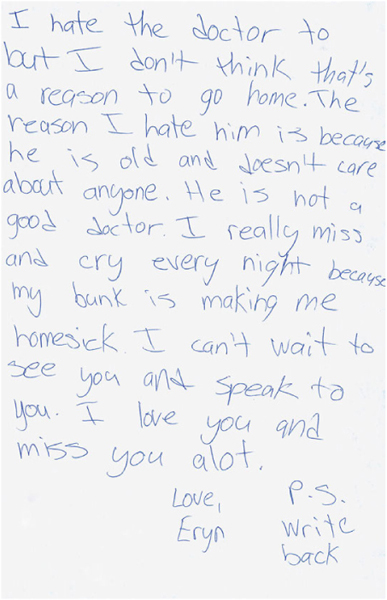 I hate the doctor to
but I don't think that's
a reason to go home. The
reason I hate him is because
he is old and doesn't care
about anyone. He is not a
good doctor. I really miss
and cry every night because
my bunk is making me
homesick. I can't wait to
see you and speak to
you. I love you and
miss you alot.
Love,
Eryn
P.S.
write
back